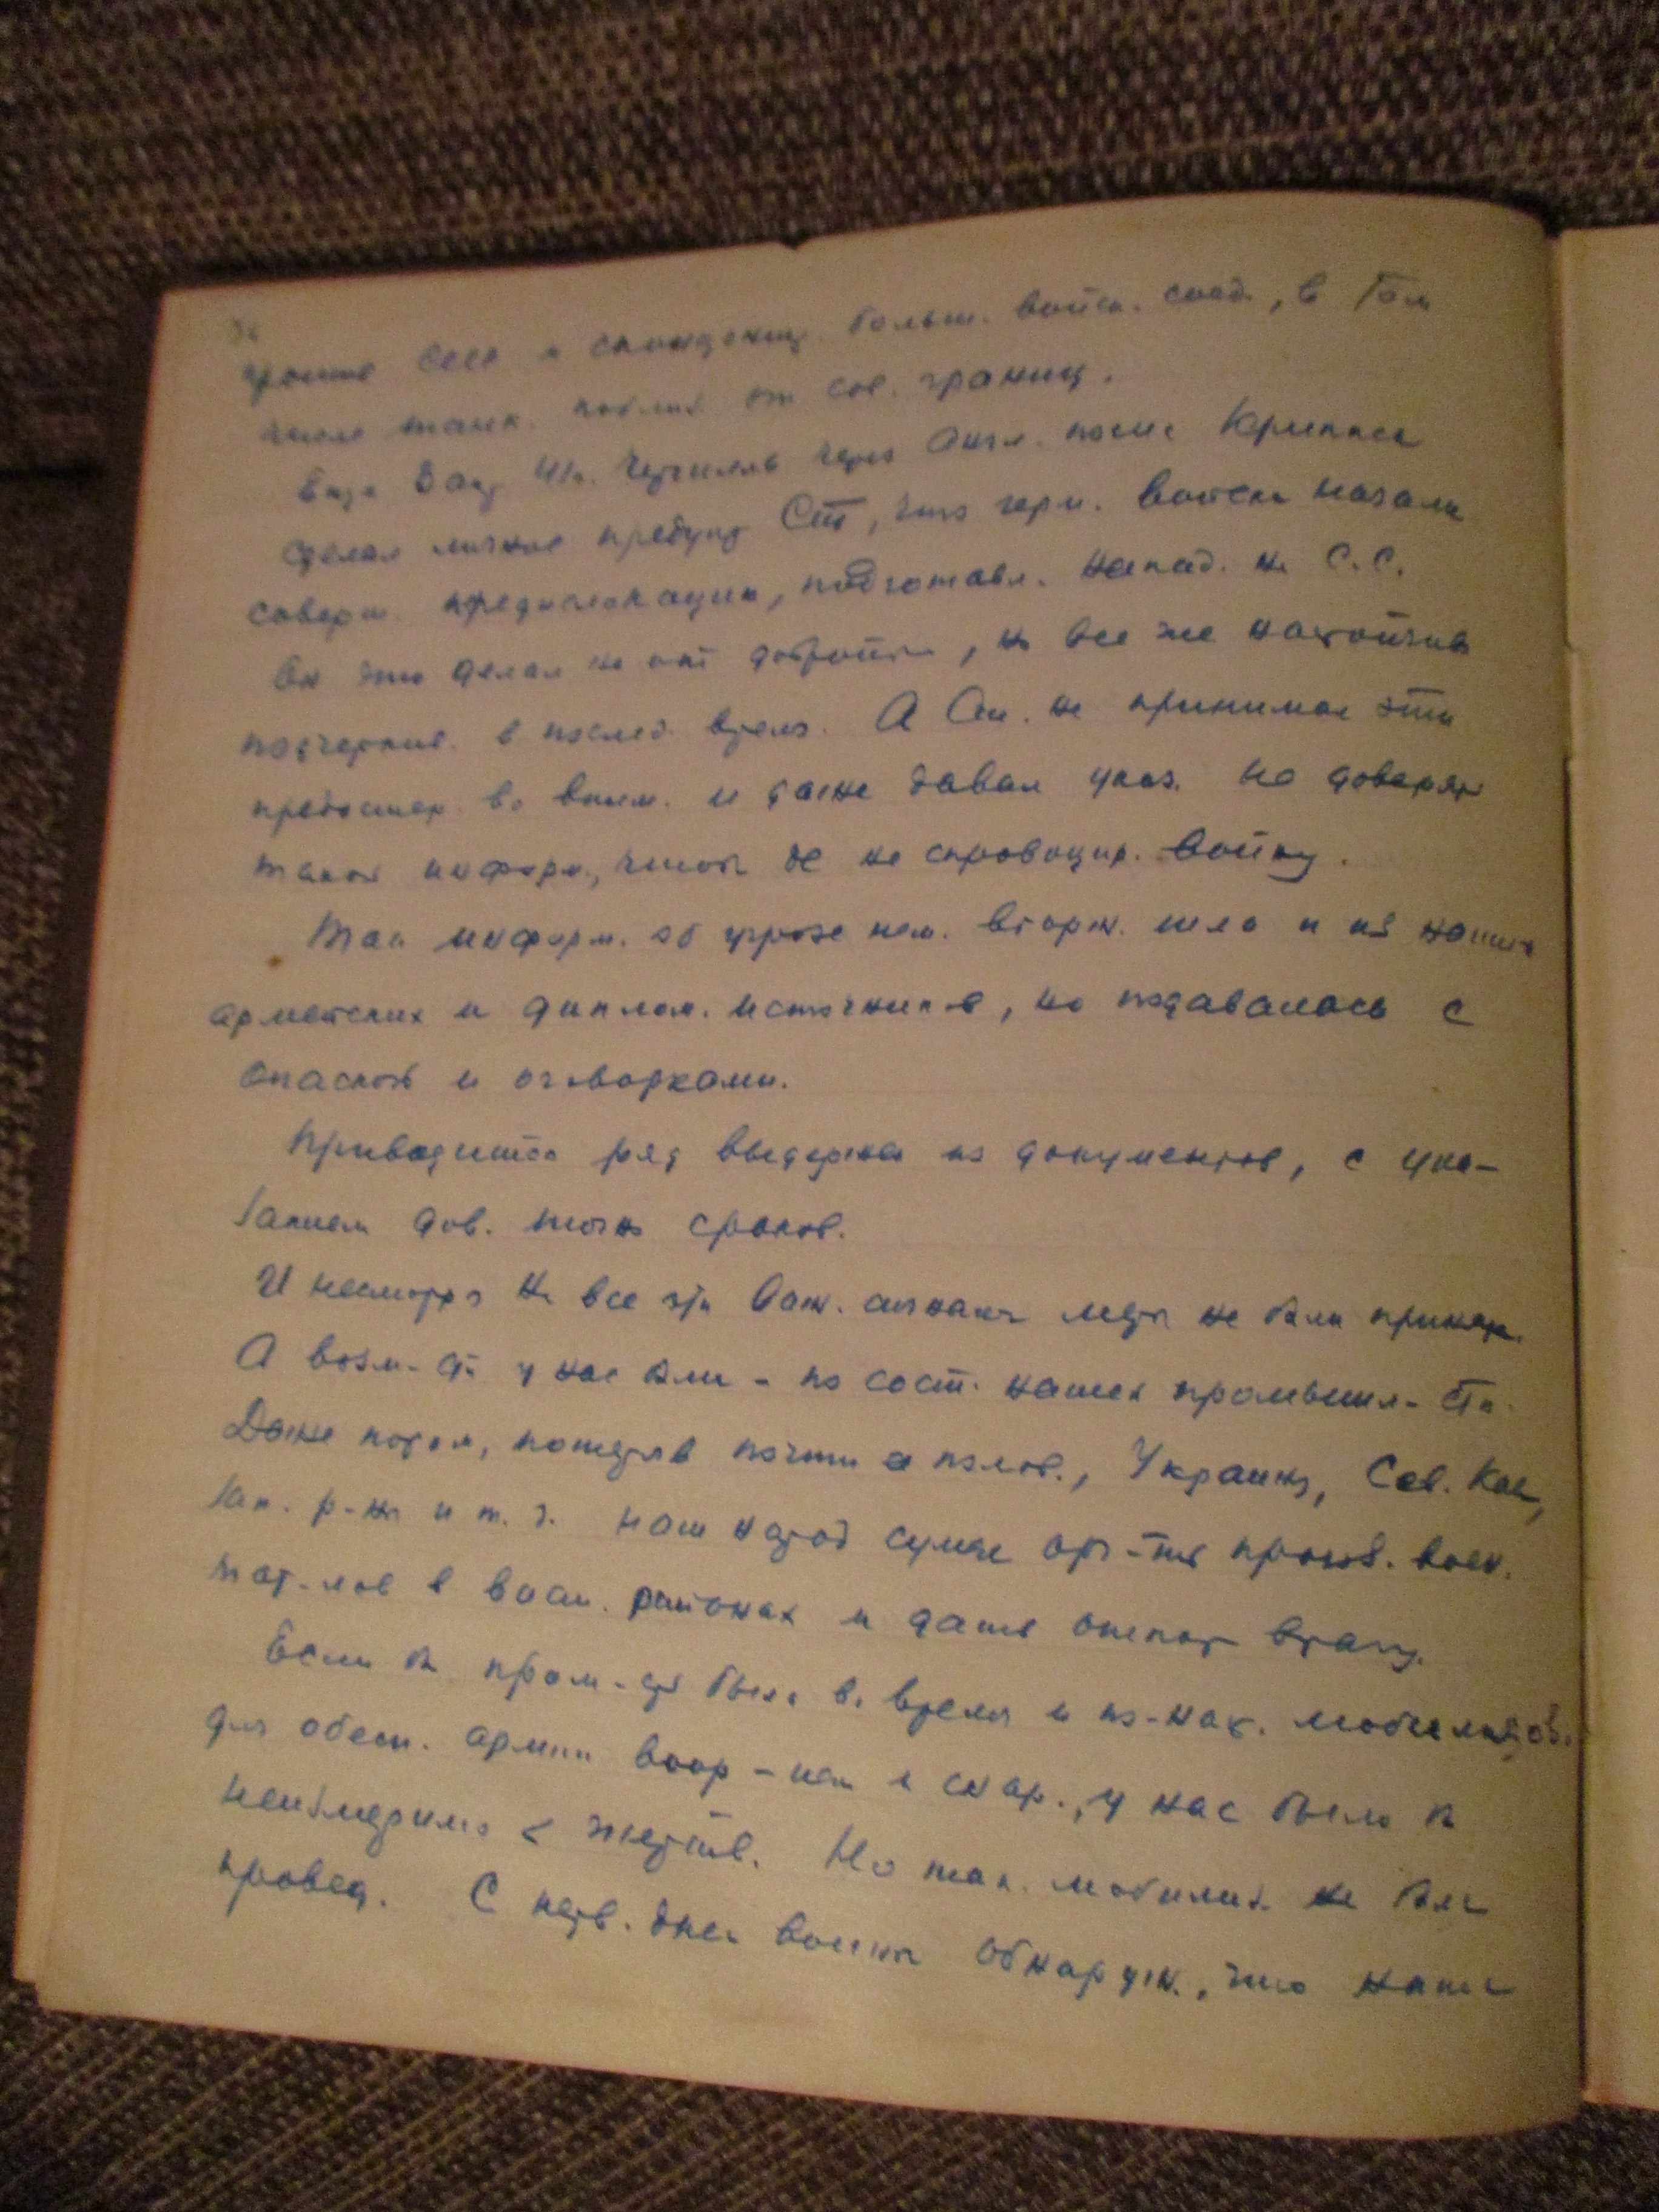 против СССР и сконцентр. больш. войск. соед., в том
числе танк. поблиз. от сов. границ.
Еще 3 апр 41г. Черчилль через Англ. посла Криппса
сделал личное предупр Ст, что герм. войска начали
соверш. передислокацию, подготавл. напад. на С.С.
Он это делал не от доброты, но все же настойчив
подчеркив. в послед. время. А Ст. не принимал эти
предостер. во вним. и даже давал указ. не доверять
такой информ., чтоб де не спровоцир. войну.
Так информ. об угрозе нем. вторж. шла и из наших
армейских и диплом. источников, но подавалась с
опаской и оговорками.
Приводится ряд выдержек из документов, с ука-
занием дов. точно сроков.
И несмотря на все эти важ. сигналы меры не были приняты.
А возм-сти у нас были - по сост. нашей промышл-сти.
Даже потом, потеряв почти  полов., Украину, Сев. Кав,
Зап. р-ны и т. д. наш народ сумел орг-ть произв. воен.
мат-лов в вост. районах и дать отпор врагу.
Если б пром-сть была во время и по-наст. мобилизов.
для обесп. армии воор-ием и снар., у нас было б
неизмеримо < жертв. Но так. мобилиз. не было
провед. С перв. дней войны обнаруж., что наша